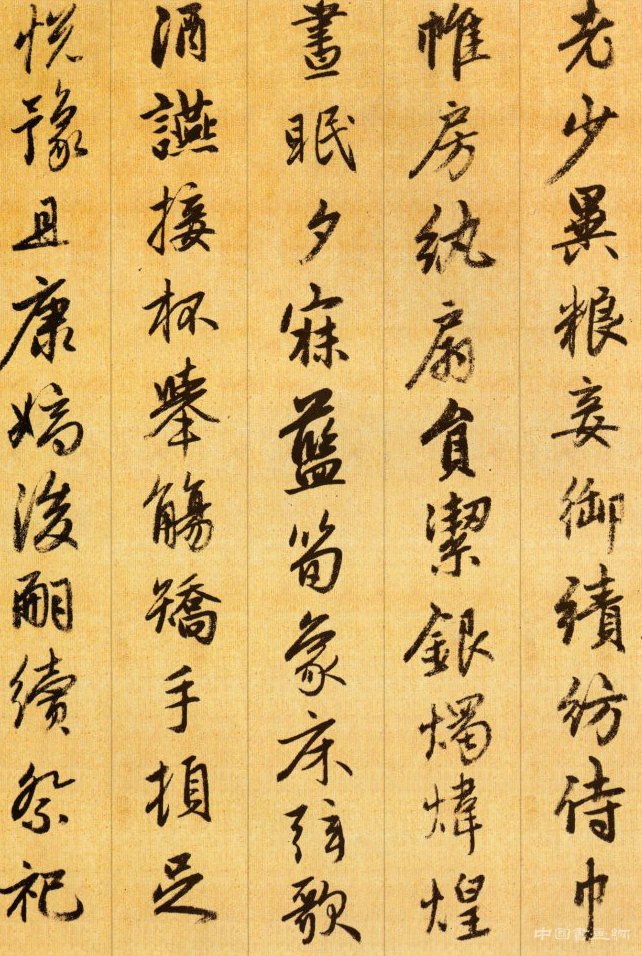 老少異粮妾御績紡侍巾
帷房紈扇員潔銀燭煒煌
晝眠夕寐藍筍象床弦歌
酒讌接杯舉觴矯手頓足
悅豫且康嫡後嗣續祭祀